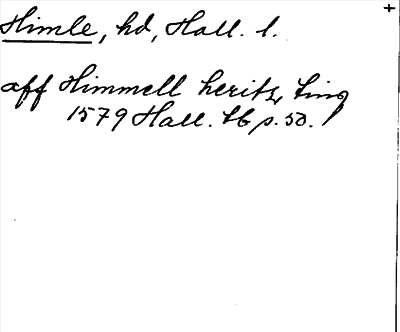 Himle, hd, Hall. l.
aff Himmell heritz ting
1579 Hall. tb p. 50.